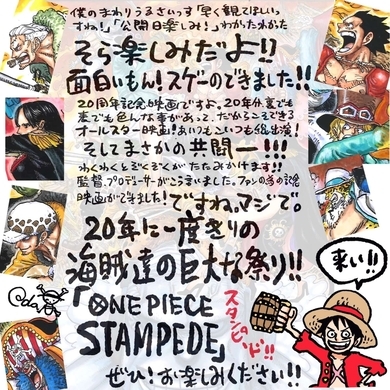 僕のまわりうるさいっす「早く観てほしい
ですね!」「公開日楽しみ!」わかったわかった
そら楽しみだよ!!
面白いもん!スゲーのできました!!
20周年記念映画ですよ。20年分、裏でも
表でも色んな事があって、だからこそできる
オールスター映画!あいつもこいつも出演!
そしてまさかの共闘ー!!!
わくわくとぞくぞくがたたみかけます!!
監督、プロデューサーがこう言いました。ファンの為の記念
映画ができました!ですね。マジで。
20年に一度きりの
海賊達の巨大な祭り!!
「ONE PIECE
STAMPEDE」
スタンピード!!
ぜひ!お楽しみください!!
来い!!
Oda